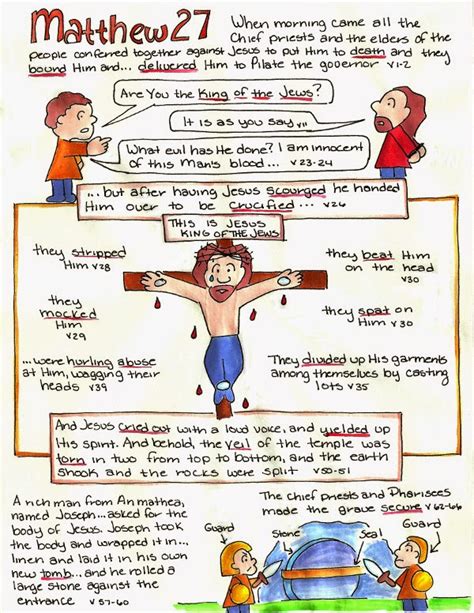 Matthew 27
When morning came all the
Chief priests and the elders of the
people conferred together against Jesus to put Him to death and they
bound Him and... delivered Him to Pilate the governor v1-2
Are You the King of the Jews?
It is as you say v11
What evil has He done? I am innocent
of this Man's blood... v23-24
... but after having Jesus scourged he handed
Him over to be Crucified... v26
THIS IS JESUS
KING OF THE JEWS
they stripped
Him v28
they beat Him
on the head
v30
they
mocked
Him
v29
they spat on
Him v30
... were hurling abuse
at Him, wagging their
heads v39
They divided up His garments
among themselves by casting
lots v35
And Jesus cried out with a loud voice, and yielded up
His spirit. And behold, the veil of the temple was
torn in two from top to bottom, and the earth
shook and the rocks were split v50-51
A rich man from Arimathea,
named Joseph... asked for the
body of Jesus. Joseph took
the body and wrapped it in...
linen and laid it in his own
new tomb... and he rolled a
large stone against the
entrance v57-60
The chief priests and Pharisees
made the grave secure v62-66
Guard
Stone
Seal
Guard